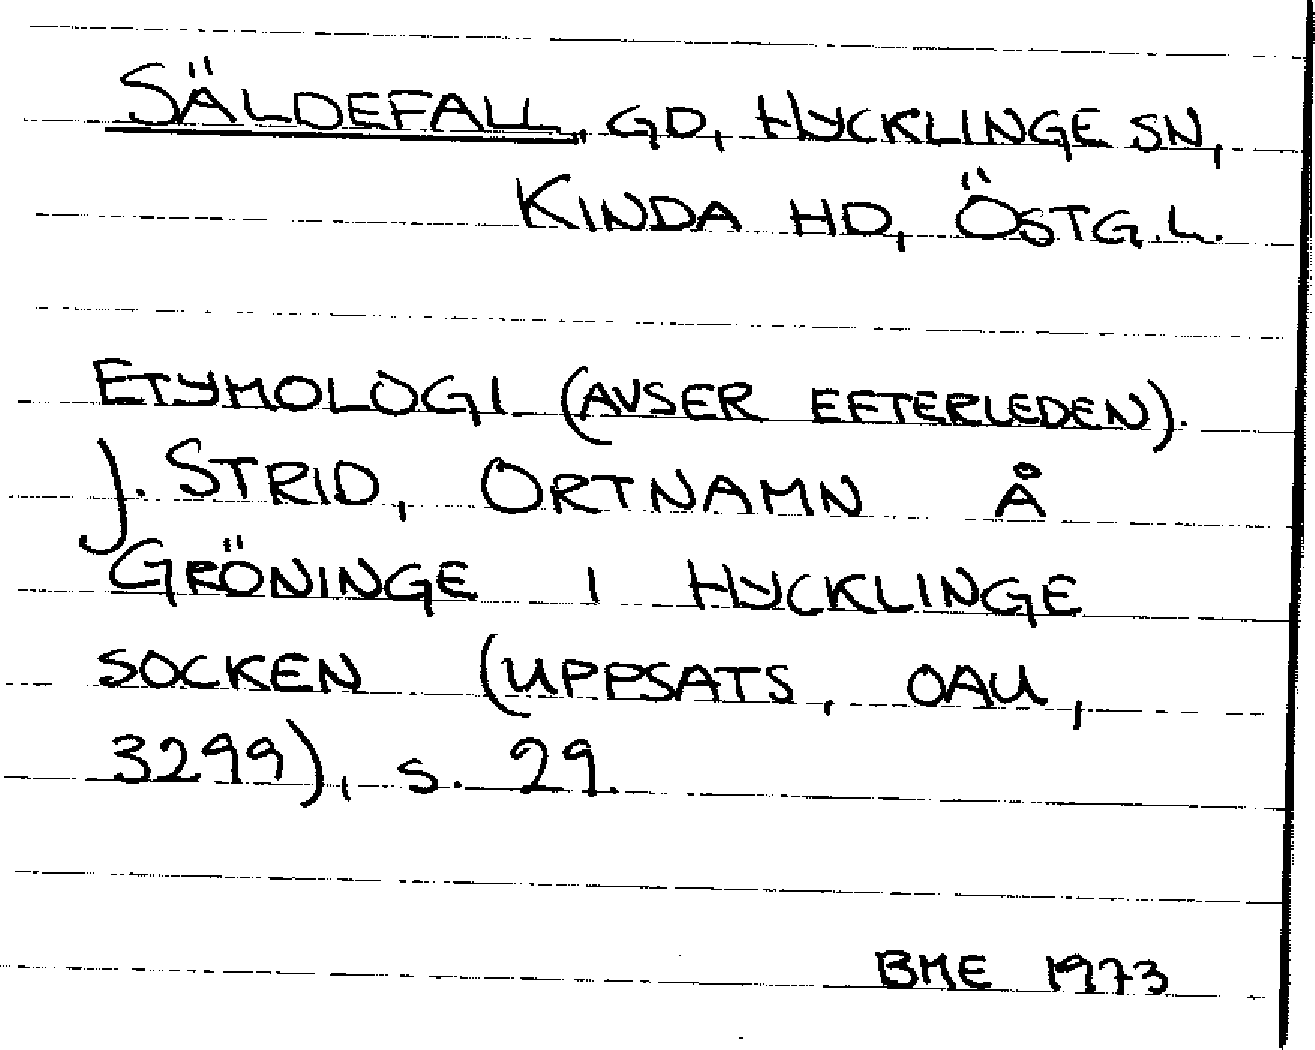 SÄLDEFALL, GD, HYCKLINGE SN,
KINDA HD, ÖSTG.L.
ETYMOLOGI (AVSER EFTERLEDEN).
J. STRID, ORTNAMN Å
GRÖNINGE I HYCKLINGE
SOCKEN (UPPSATS, OAU,
3299), s. 29.
BME 1973